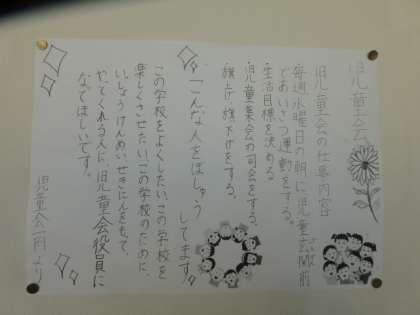 児童会
児童会の仕事内容
・毎週水曜日の朝に、児童玄関前
であいさつ運動をする。
・生活目標を決める。
・児童集会の司会をする。
・旗上げ、旗下げをする。
こんな人をぼしゅう
してます!
この学校をよくしたい、この学校を
楽しくさせたい、この学校のために、
いっしょうけんめい、せきにんをもって、
やってくれる人に、児童会役員に
なってほしいです。
児童会一同より